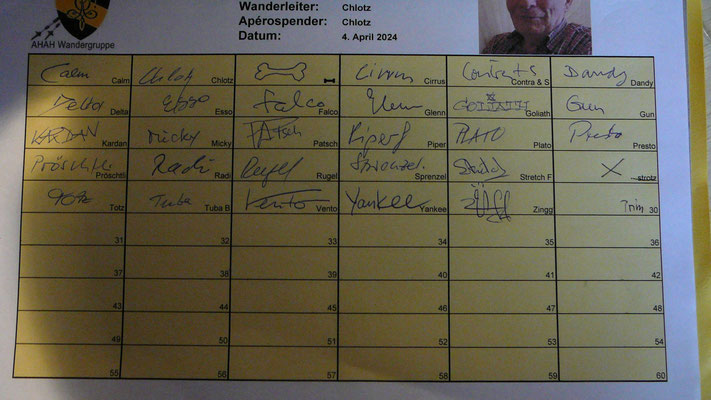 Wanderleiter: Chlotz
Apérospender: Chlotz
Datum: 4. April 2024
AHAH Wandergruppe
Calm Calm Chlotz Chlotz Cirrus Cirrus Contra & S Dandy Dandy
Delta Delta Esso Esso Falco Falco Glenn Glenn Goliath Goliath Gun Gun
KARDAN Kardan Micky Micky PATsch Patsch Piper Piper PLATO Plato Presto Presto
Pröschtli Pröschtli Radi Radi Rugel Rugel Sprenzel Sprenzel Stretch F X strotz
Tötz Tuba Tuba B Vento Vento Yankee Yankee Zingg Prim 30
31 32 33 34 35 36
37 38 39 40 41 42
43 44 45 46 47 48
49 50 51 52 53 54
55 56 57 58 59 60